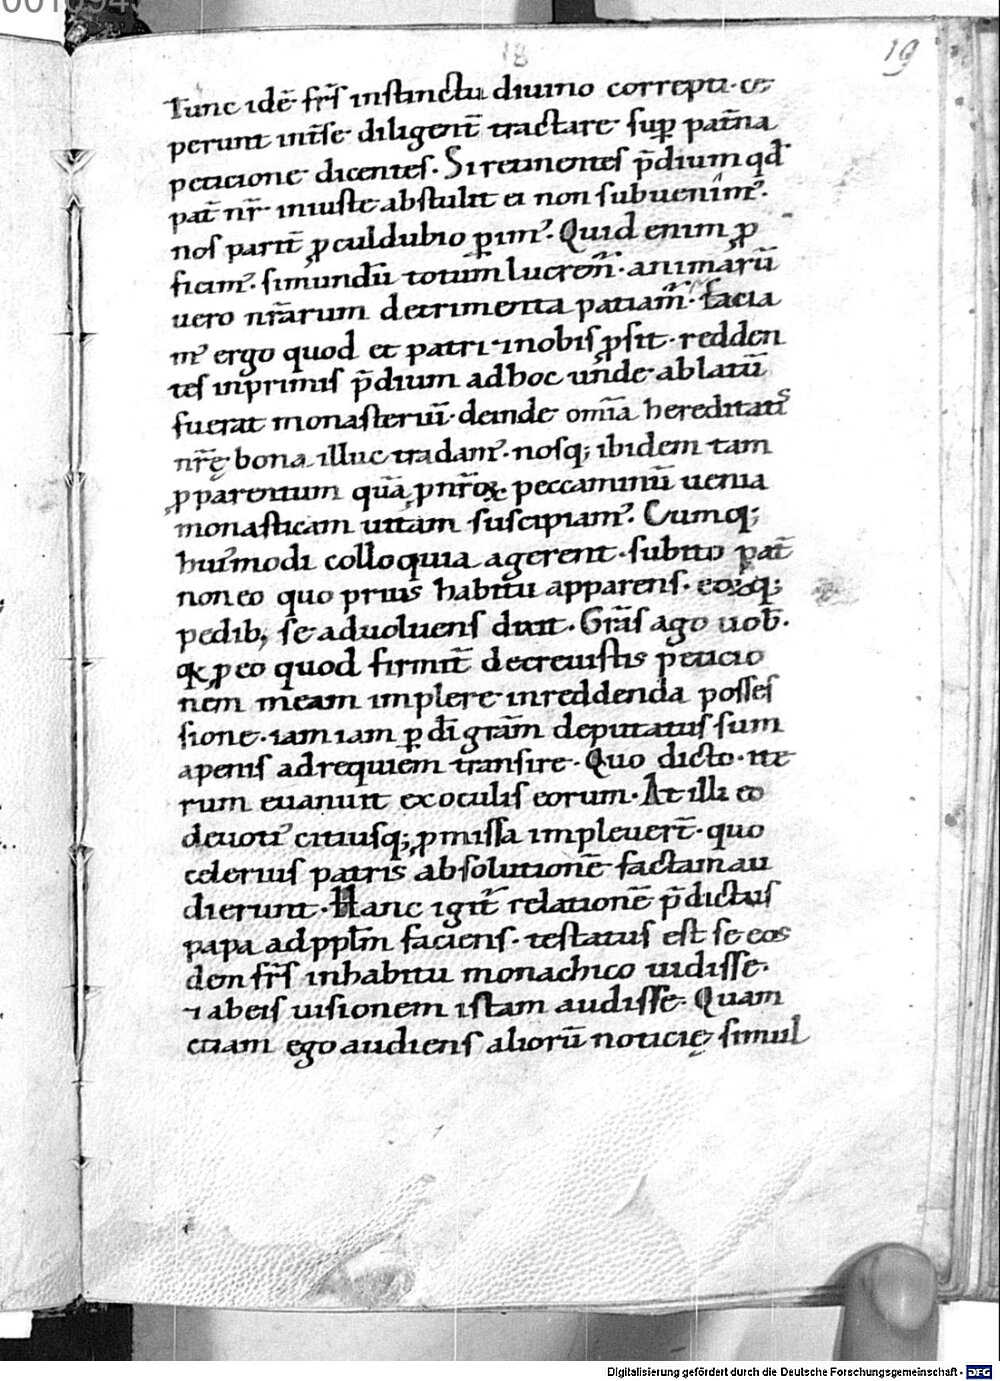 18
19
Tunc idē fr̄s instinctu diuino correpti· ce
perunt int̄ se diligent̄ tractare sup̱ pat̄na
peticione dicentes. Si retinentes p̄dium qd̄
pat̄ nr̄ iniuste abstulit ei non subuenim᷒.
nos parit̄ ꝓculdubio ꝑim᷒. Quid enim ꝓ
ficim᷒. si mundū totum lucrem̄· animarū
uero nr̄arum detrimenta patiam̄· Facia
m᷒ ergo quod et patri· ꞇ nobis ꝓsit· redden
tes inprimis p̄dium ad hoc un̄de ablatū
fuerat monasteriū· deinde om̄ia hereditatis
nr̄ę bona illuc tradam᷒· nosq; ibidem tam
ꝓ parentum quā ꝓ nr̄oꝝ peccaminū uenia
monasticam uitam suscipiam᷒. Cumq;
hui᷒modi colloquia agerent· subito pat̄
non eo quo prius habitu apparens· eoꝝq;
pedib; se aduoluens dixit. Gr̄as ago uob̄.
qꝛ ꝓ eo quod firmit̄ decreuistis peticio
nem meam implere in reddenda posses
sione· iam iam ꝑ dī grām deputatus sum
a penis ad requiem transire· Quo dicto· ite
rum euanuit ex oculis eorum· At illi eo
deuoti᷒ citiusq; ꝓmissa impleuer̄t· quo
celerius patris absolutionē factam au
dierunt· Hanc igit̄ relationē p̄dictus
papa ad ppl̄m faciens· testatus est se eos
dem fr̄s in habitu monachico uidisse·
⁊ ab eis uisionem istam audisse· Quam
etiam ego audiens aliorū noticię simul
Digitalisierung gefördert durch die Deutsche Forschungsgemeinschaft · DFG